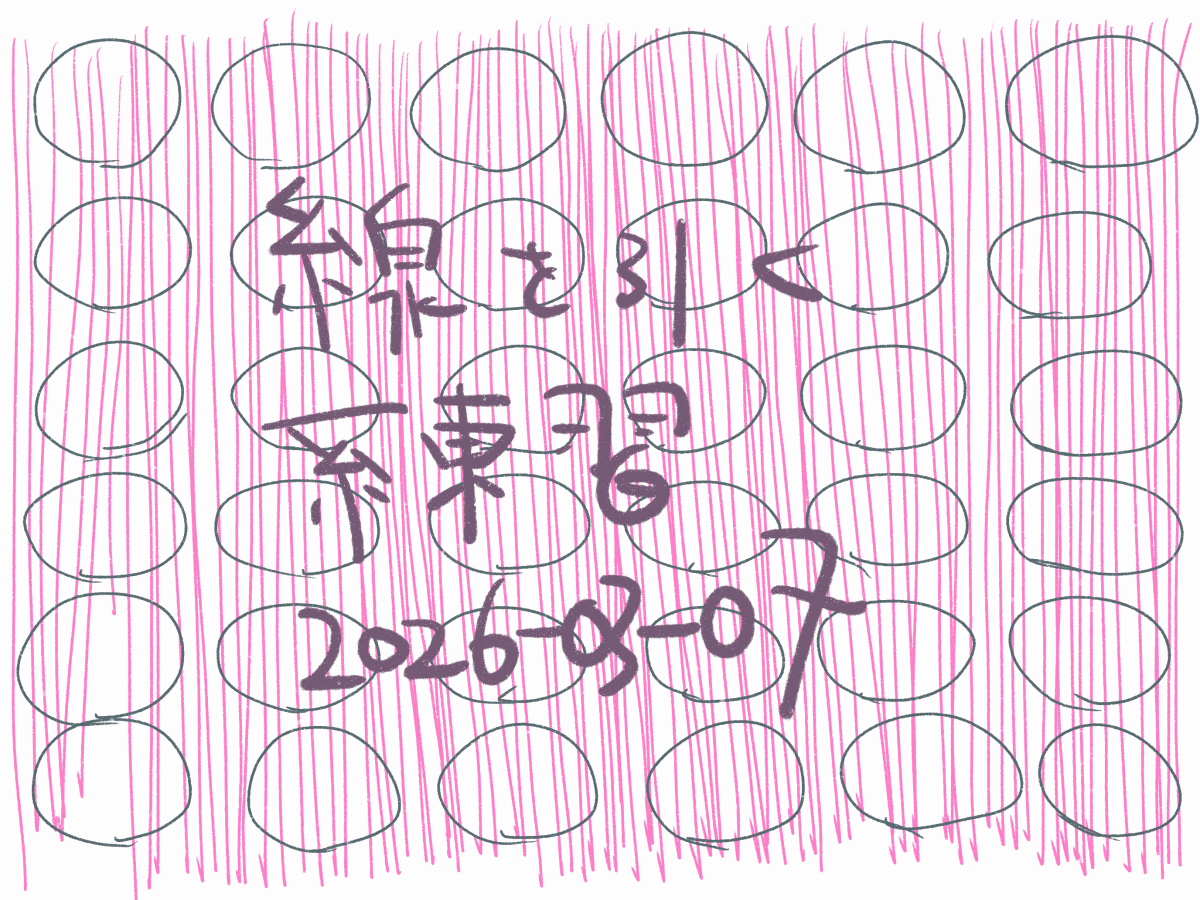 線を引く
練習
2026-03-07